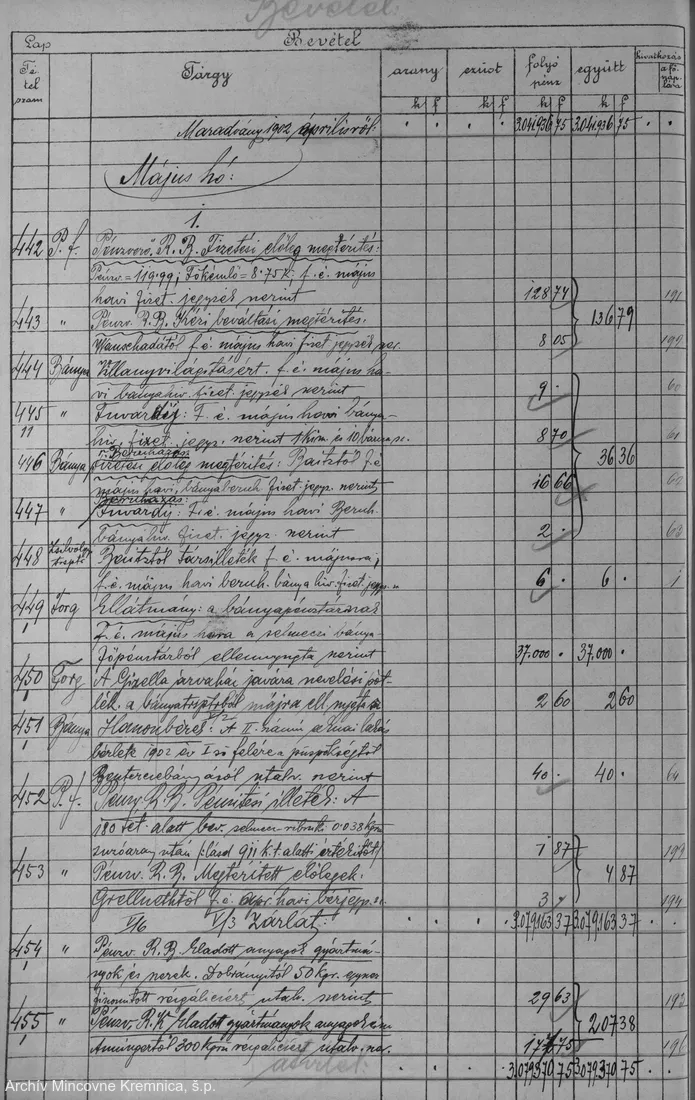 Bevétel.
Lap Bevétel
Tétel szám Tárgy arany ezüst folyó pénz együtt hivatkozás a főnaplóra
k f k f k f k f
Maradvány 1902 áprilisról: 3.041.936 75 3.041.936 75
Május hó:
1.
442 P. f. Pénzverő R. B. Fizetési előleg megtérítés:
Pénzv = 119.99; Főkémlő = 8.75 k: f. é. május
havi fizet. jegyzék szerint 128 74 191
443 " Pénzv. R. B. Kézi beváltási megtérítés: 136 79
f. é. május havi fizet jegyzék szer. 8 05 192
444 Bánya Villanyvilágításért. f. é. május ha-
vi bányahiv. fizet. jegyzék szerint 9 . 60
445 " Fuvardíj: F. é. május havi bánya-
hiv. fizet. jegyz. szerint 8 70 61
446 Bánya Fizetési előleg megtérítés: f. é. 36 36
május havi, bányaberuh. fizet. jegyz. szerint 16 66 62
Beruházás:
447 " Fuvardíj: f. é. május havi Beruh.
bányahiv. fizet. jegyz. szerint 2 . 63
448 társilleték f. é. májusra,
f. é. május havi beruh. bánya hiv. fizet. jegyz. 6 . 6 .
449 Forg Ellátmány: a bányapénztárnak
F. é. május hóra a selmeczi bánya-
főpénztárból ellennyugta szerint 37.000 . 37.000 .
450 Forg A Gizella árvaház javára nevelési pót-
lék. a májra ell. nyugta 2 60 2 60
451 Bánya Haszonbérek: A II.
bérlete 1902 év I-ső felére a püspökségtől
Beszterczebányáról utalv. szerint 40 . 40 . 64
452 P. f. Pénzv. R. B. Pénzítési illeték: A
180 tét. alatt bev. selmeczi 0.038 kgrm
után alatti értékitől 1 87 193
453 " Pénzv. R. B. Megtérített előlegek. 4 87
f. é. ápr. havi bérjegyz. sz. 3 194
V/6 V/3 Zárlat: 3.079.163 37 3.079.163 37
454 " Pénzv. R. B. Eladott anyagok gyártmá-
nyok és szerek. Dobránytól 50 kgr.
finomított rézgáliczért utalv. szerint 29 63 195
455 " Pénzv. R. K. Eladott gyártmányok anyagok 207 38
300 kgrm rézgáliczért utalv. sz. 177 75 196
3.079.370 75 3.079.370 75
Archív Mincovne Kremnica, š.p.